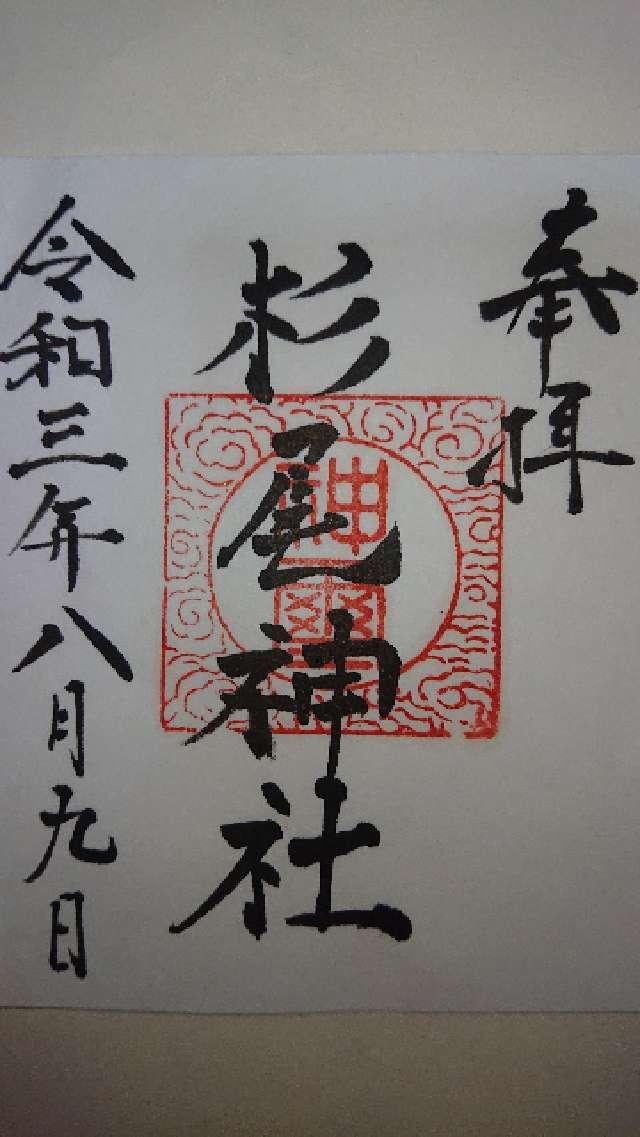 奉拝
杉尾神社
令和三年八月九日